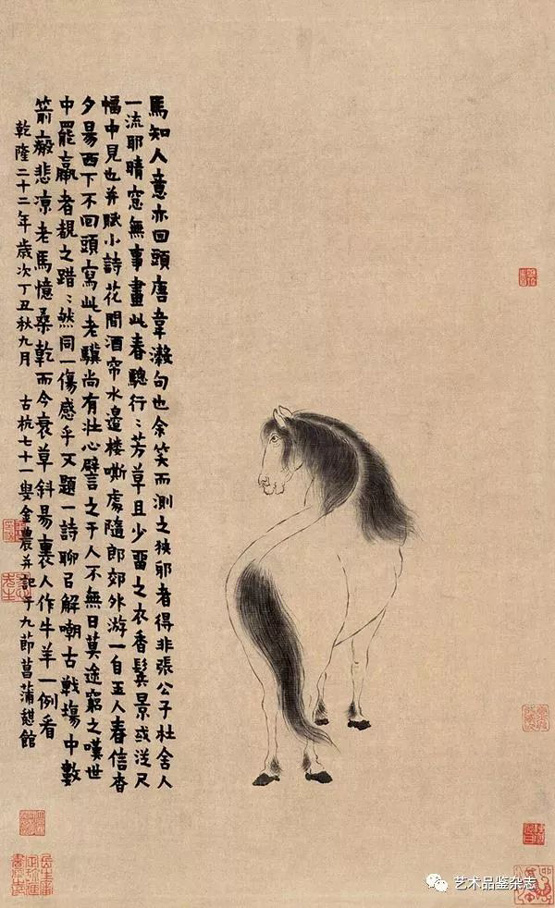 馬知人意亦回頭唐韋濚句也余笑而測之狹邪者得非張公子杜舍人
一流耶晴窓無事畫此春驄行〻芳草且少畱之衣香鬓景或泛尺
幅中見也并賦小詩花間酒帘水邉楼嘶處隨郎郊外游一自玉人春信杳
夕昜西下不回頭寫此老驥尚有壮心譬之于人不無日莫途窮之嘆世
中罷羸者覩之踖〻然同一傷感乎又題一詩聊㠯解嘲古戰塲中數
箭瘢悲凉老馬憶桑乾而今衰草斜昜裏人作牛羊一例看
乾隆二十二年歲次丁丑秋九月 古杭七十一叟金農并記于九節菖蒲憩館
艺术品鉴杂志